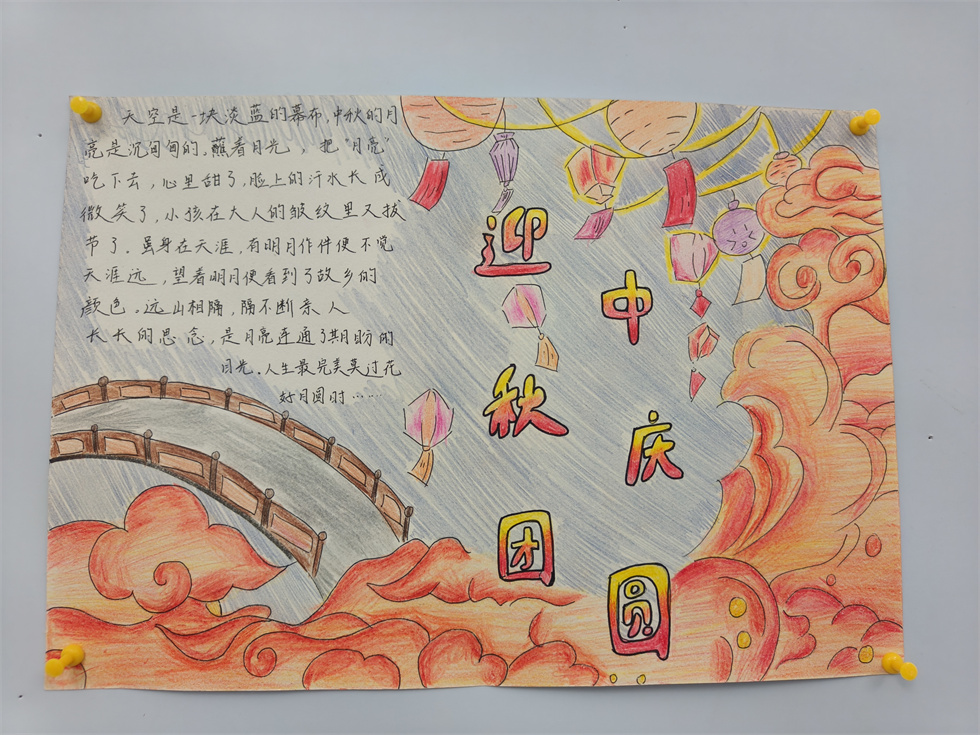 天空是一块淡蓝的幕布,中秋的月
亮是沉甸甸的,蘸着月光,把"月亮"
吃下去,心里甜了,脸上的汗水长成
微笑了,小孩在大人的皱纹里又拔
节了.虽身在天涯,有明月作伴便不觉
天涯远,望着明月便看到了故乡的
颜色。远山相隔,隔不断亲人
长长的思念,是月亮连通了期盼的
目光.人生最完美莫过花
好月圆时……
迎中
秋庆
团圆